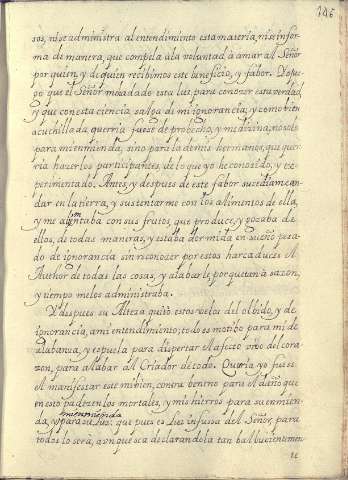 146
sos, ni se administra al entendimiento esta materia, ni se infor
ma de manera, que compela à la voluntad, à amar al Señor
por quien, y de quien recibimos este beneficio, y fabor. Despu
que el Señor me à dado esta luz para conozer esta verdad,
y que con esta ciencia, salga de mi ignorancia, y como bien
acuchillada, querria fuese de probecho, y medizina, no solo
para mi enmienda, sino para los demàs hermanos, que quer
ria hazerlos participantes, de lo que yo he conozido, y ex
perimentado. Antes, y despues de este fabor sucediame an
dar en la tierra, y sustentarme con los alimentos de ella,
y me alimentaba con sus frutos, que produce, y gozaba de
ellos, de todas maneras, y estaba dormida en sueño pesa
do de ignorancia sin reconozer por estos harcaduces al
Author de todas las cosas, y alabarle, porque tan à sazon,
y tiempo me los administraba.
Y despues su Alteza quitò estos velos del olbido, y de
ignorancia, à mi entendimiento; todo es motibo para mi de
alabanza, y espuela para dispertar el afecto vivo del cora
zon, para alabar al Criador de todo. Querria yo fuese
el manifestar este mi bien, contra beneno para el daño que
en esto padezen los mortales, y mis hierros para su enmien
mi enmienda
da, y para su luz: que pues es luz infussa del Señor, para
todos lo serà, aunque sea declarandola tan balbucientemen
te